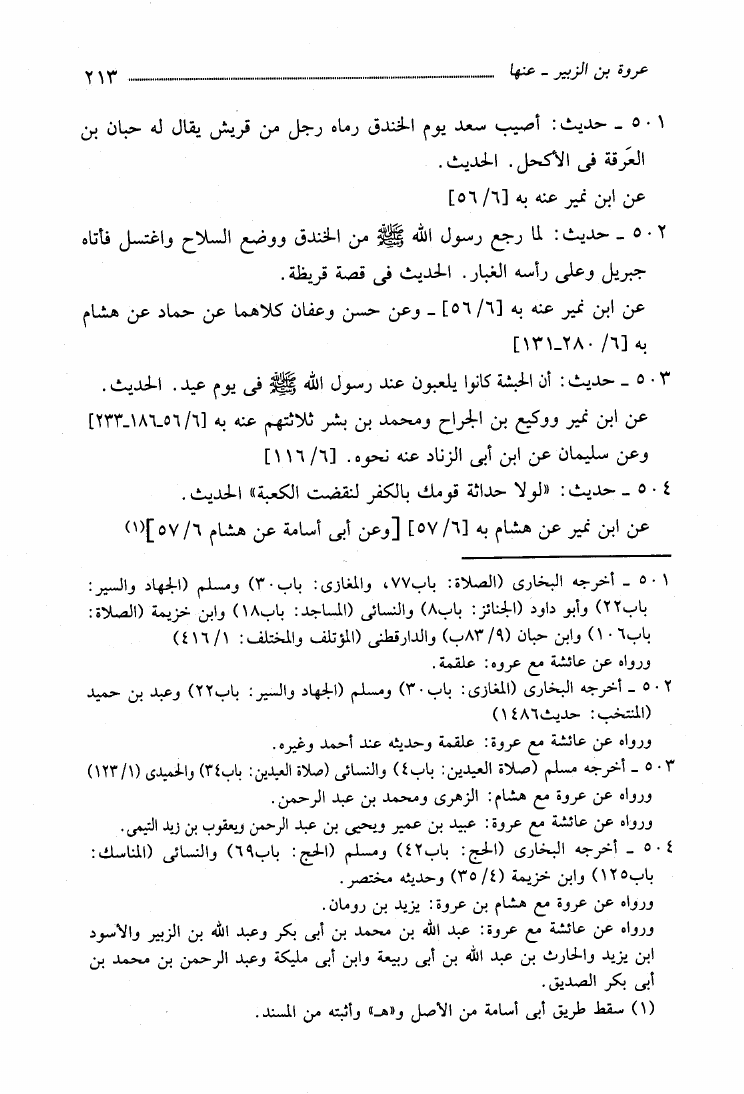 عروة بن الزبير - عنها ........ ٢١٣
٥٠١ - حديث: أصيب سعد يوم الخندق رماه رجل من قريش يقال له حبان بن
العَرقة فى الأكحل. الحديث.
عن ابن نمير عنه به [٦/ ٥٦]
٥٠٢ - حديث: لما رجع رسول الله ﷺ من الخندق ووضع السلاح واغتسل فأتاه
جبريل وعلى رأسه الغبار. الحديث فى قصة قريظة.
عن ابن نمير عنه به [٦/ ٥٦] - وعن حسن وعفان كلاهما عن حماد عن هشام
به [٦/ ٢٨٠-١٣١]
٥٠٣ - حديث: أن الحبشة كانوا يلعبون عند رسول الله ﷺ فى يوم عيد. الحديث.
عن ابن نمير ووكيع بن الجراح ومحمد بن بشر ثلاثتهم عنه به [٦/ ٥٦-١٨٦-٢٣٣]
وعن سليمان عن ابن أبى الزناد عنه نحوه. [٦/ ١١٦]
٥٠٤ - حديث: «لولا حداثة قومك بالكفر لنقضت الكعبة» الحديث.
عن ابن نمير عن هشام به [٦/ ٥٧] [وعن أبى أسامة عن هشام ٦/ ٥٧](١)
٥٠١ - أخرجه البخارى (الصلاة: باب٧٧، والمغازى: باب٣٠) ومسلم (الجهاد والسير:
باب٢٢) وأبو داود (الجنائز: باب٨) والنسائى (المساجد: باب١٨) وابن خزيمة (الصلاة:
باب١٠٦) وابن حبان (٩/ ٨٣ب) والدارقطنى (المؤتلف والمختلف: ١/ ٤١٦)
ورواه عن عائشة مع عروه: علقمة.
٥٠٢ - أخرجه البخارى (المغازى: باب٣٠) ومسلم (الجهاد والسير: باب٢٢) وعبد بن حميد
(المنتخب: حديث١٤٨٦)
ورواه عن عائشة مع عروة: علقمة وحديثه عند أحمد وغيره.
٥٠٣ - أخرجه مسلم (صلاة العيدين: باب٤) والنسائى (صلاة العيدين: باب٣٤) والحميدى (١/ ١٢٣)
ورواه عن عروة مع هشام: الزهرى ومحمد بن عبد الرحمن.
ورواه عن عائشة مع عروة: عبيد بن عمير ويحيى بن عبد الرحمن ويعقوب بن زيد التيمى.
٥٠٤ - أخرجه البخارى (الحج: باب٤٢) ومسلم (الحج: باب٦٩) والنسائى (المناسك:
باب١٢٥) وابن خزيمة (٤/ ٣٥) وحديثه مختصر.
ورواه عن عروة مع هشام بن عروة: يزيد بن رومان.
ورواه عن عائشة مع عروة: عبد الله بن محمد بن أبى بكر وعبد الله بن الزبير والأسود
ابن يزيد والحارث بن عبد الله بن أبى ربيعة وابن أبى مليكة وعبد الرحمن بن محمد بن
أبى بكر الصديق.
(١) سقط طريق أبى أسامة من الأصل و«هـ» وأثبته من المسند.